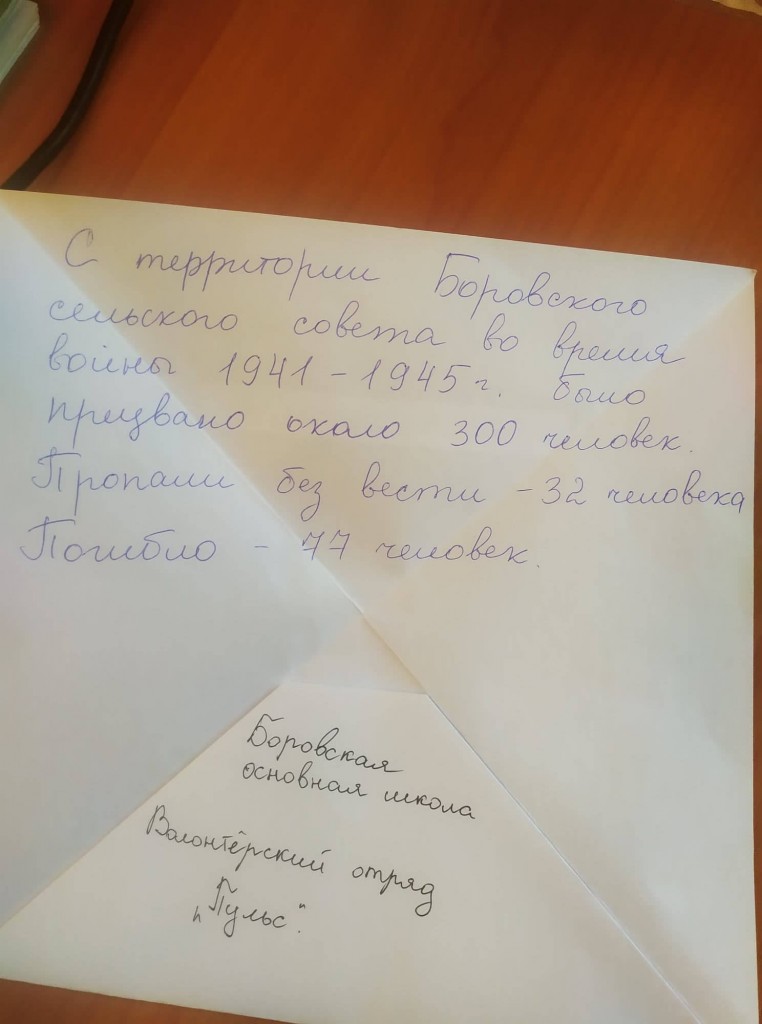 С территории Боровского
сельского совета во время
войны 1941-1945 г. было
призвано около 300 человек.
Пропали без вести - 32 человека
Погибло - 77 человек.
Боровская
основная школа
Волонтёрский отряд
„Пульс".